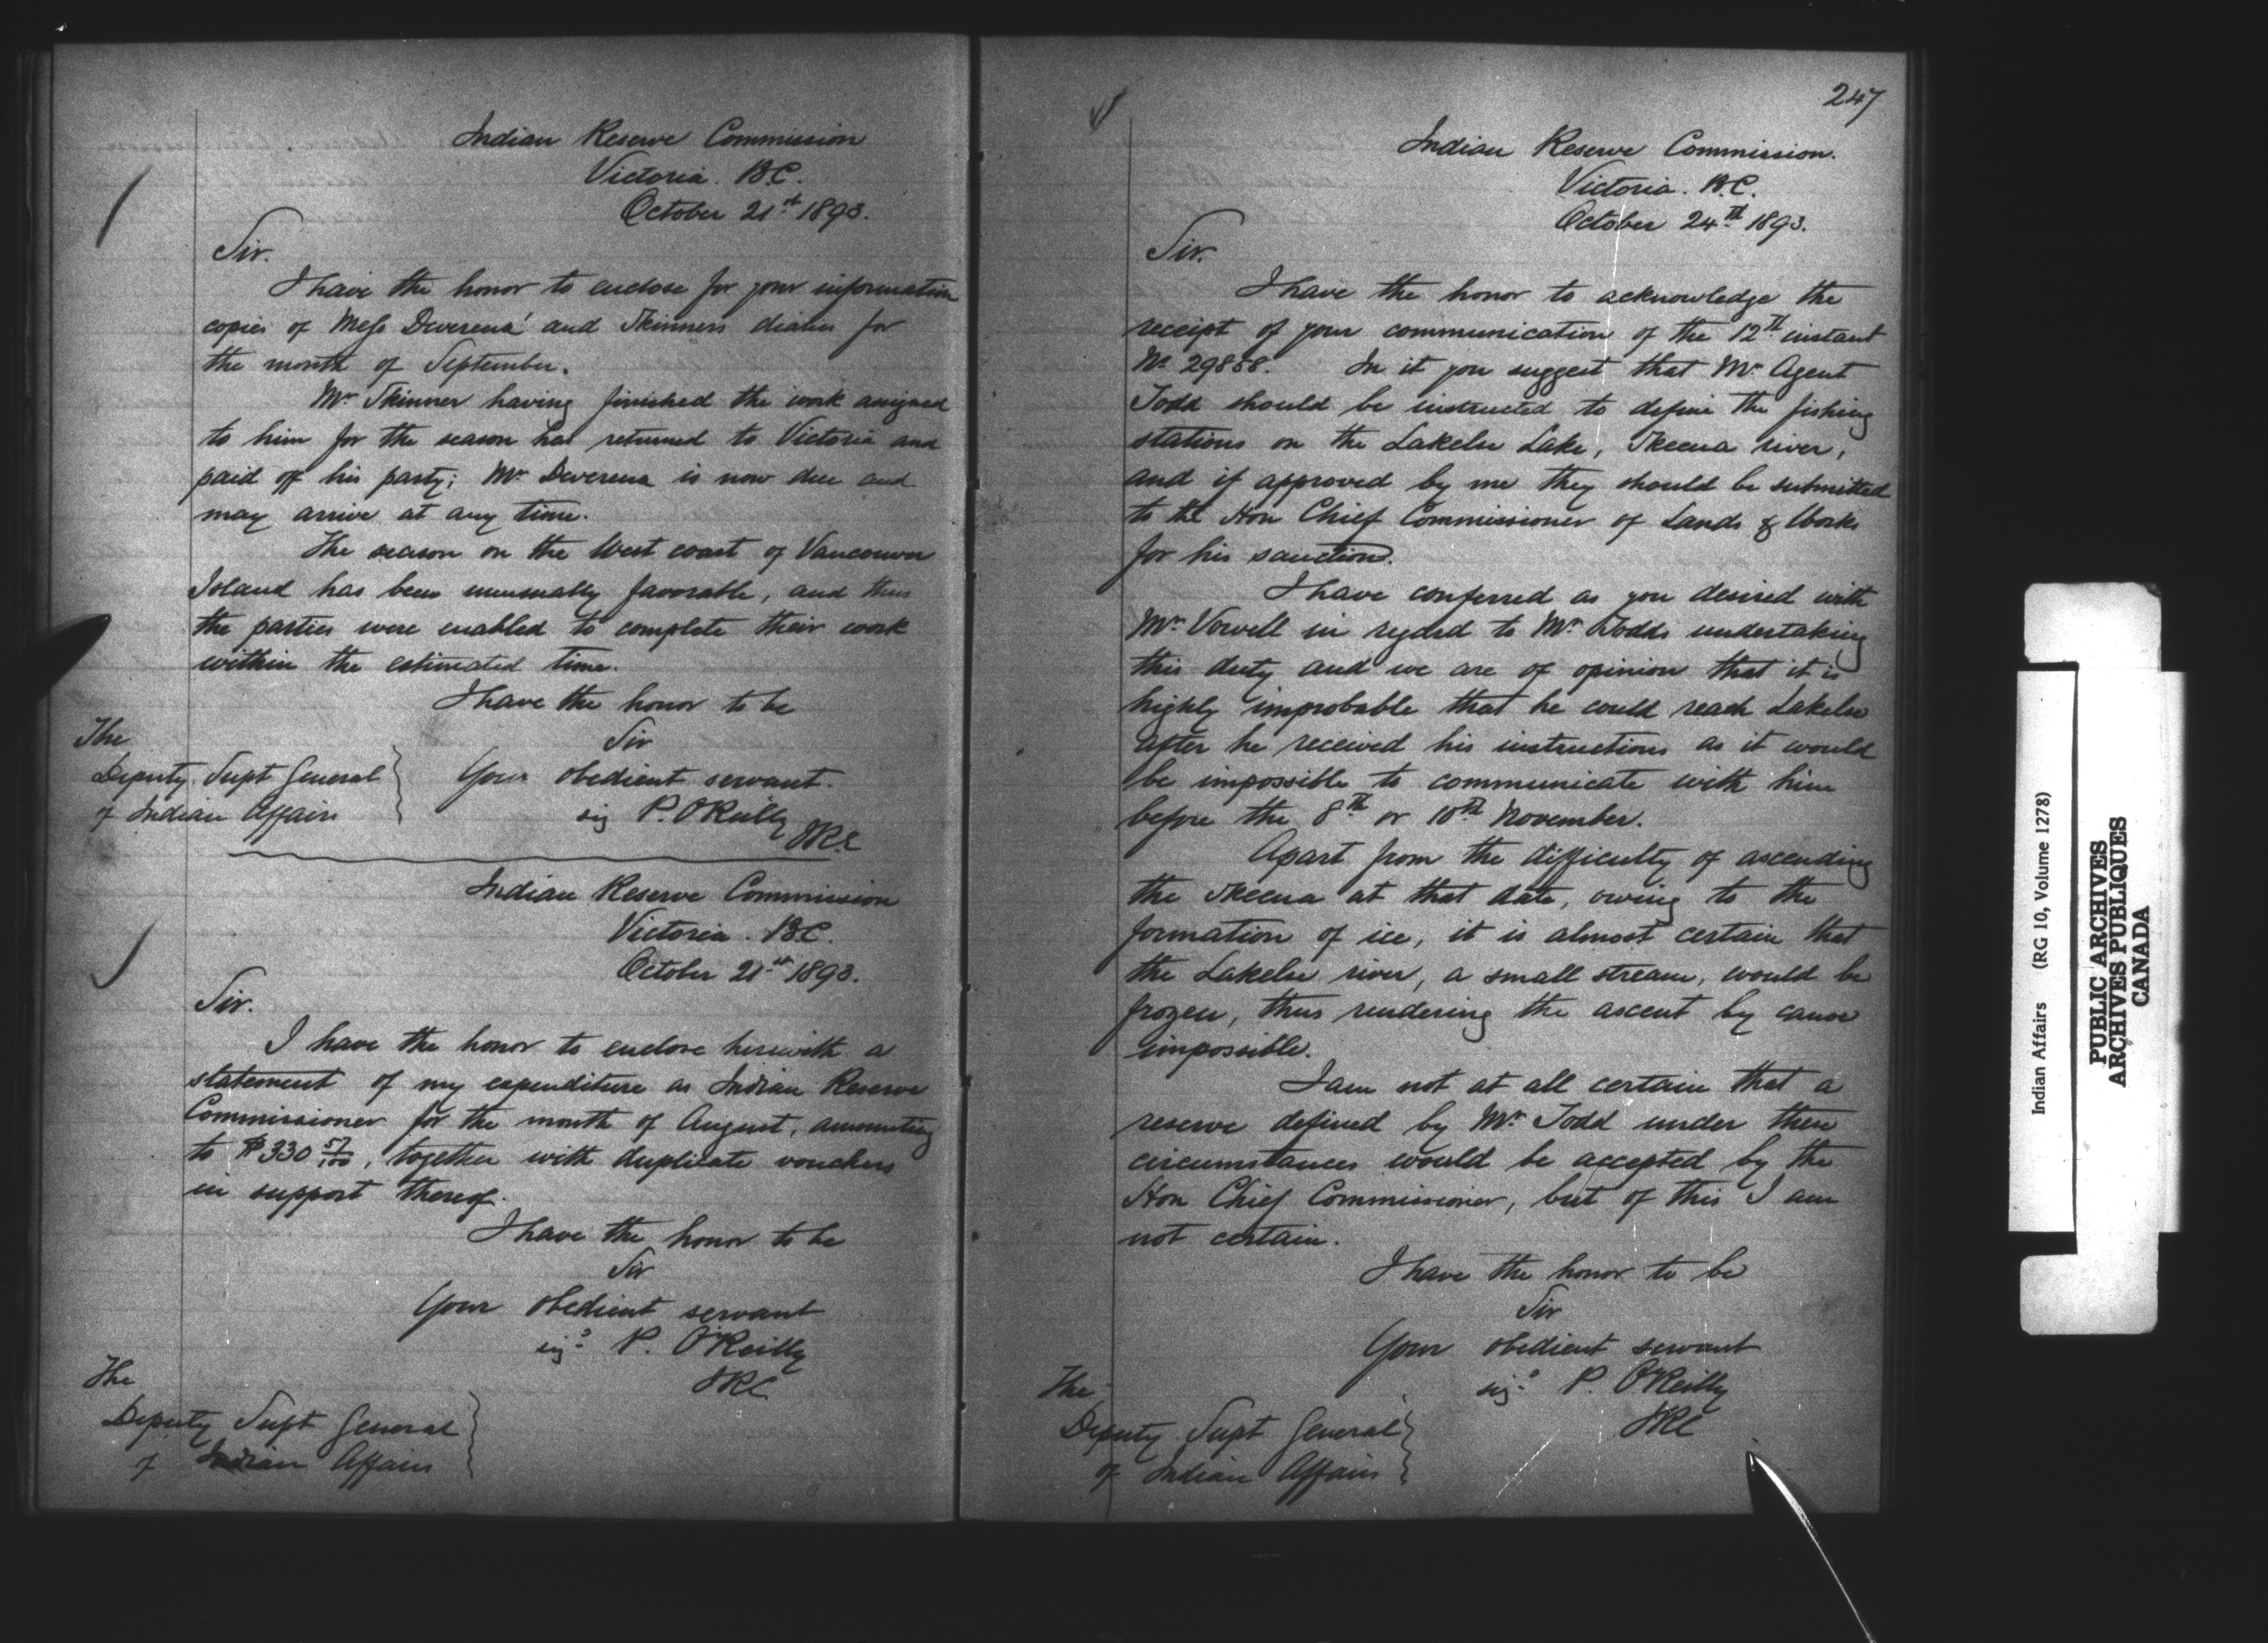 Indian Reserve Commission
Victoria. B.C.
October 21st 1893.
Sir.
I have the honor to enclose for your information
copies of Mess Devereux' and Skinners diaries for
the month of September.
Mr Skinner having finished the work assigned
to him for the season has returned to Victoria and
paid off his party; Mr Devereux is now due and
may arrive at any time.
The season on the West coast of Vancouver
Island has been unusually favorable, and thus
the parties were enabled to complete their work
within the estimated time.
I have the honor to be
Sir
Your obedient servant.
sig P. O'Reilly
IRC
The
Deputy Supt General
of Indian Affairs
Indian Reserve Commission
Victoria. B.C.
October 21st 1893.
Sir.
I have the honor to enclose herewith a
statement of my expenditure as Indian Reserve
Commissioner for the month of August, amounting
to $330 57/100, together with duplicate vouchers
in support thereof.
I have the honor to be
Sir
Your obedient servant
sigd P. O'Reilly
IRC
The
Deputy Supt General
of Indian Affairs
247
Indian Reserve Commission.
Victoria. B.C.
October 24th 1893.
Sir.
I have the honor to acknowledge the
receipt of your communication of the 12th instant
No In it you suggest that Mr Agent
Todd should be instructed to define the fishing
stations on the Lakelse Lake, Skeena river,
and if approved by me they should be submitted
to the Hon Chief Commissioner of Lands & Works
for his sanction.
I have conferred as you desired with
Mr Vowell in regard to Mr Todds undertaking
this duty and we are of opinion that it is
highly improbable that he could reach Lakelse
after he received his instructions as it would
be impossible to communicate with him
before the 8th or 10th November.
Apart from the difficulty of ascending
the Skeena at that date, owing to the
formation of ice, it is almost certain that
the Lakelse river, a small stream, would be
frozen, thus rendering the ascent by canoe
impossible.
I am not at all certain that a
reserve defined by Mr Todd under these
circumstances would be accepted by the
Hon Chief Commissioner, but of this I am
not certain.
I have the honor to be
Sir
Your obedient servant
sigd P. O'Reilly
IRC
The
Deputy Supt General
of Indian Affairs
Indian Affairs (RG 10, Volume 1278)
PUBLIC ARCHIVES
ARCHIVES PUBLIQUES
CANADA